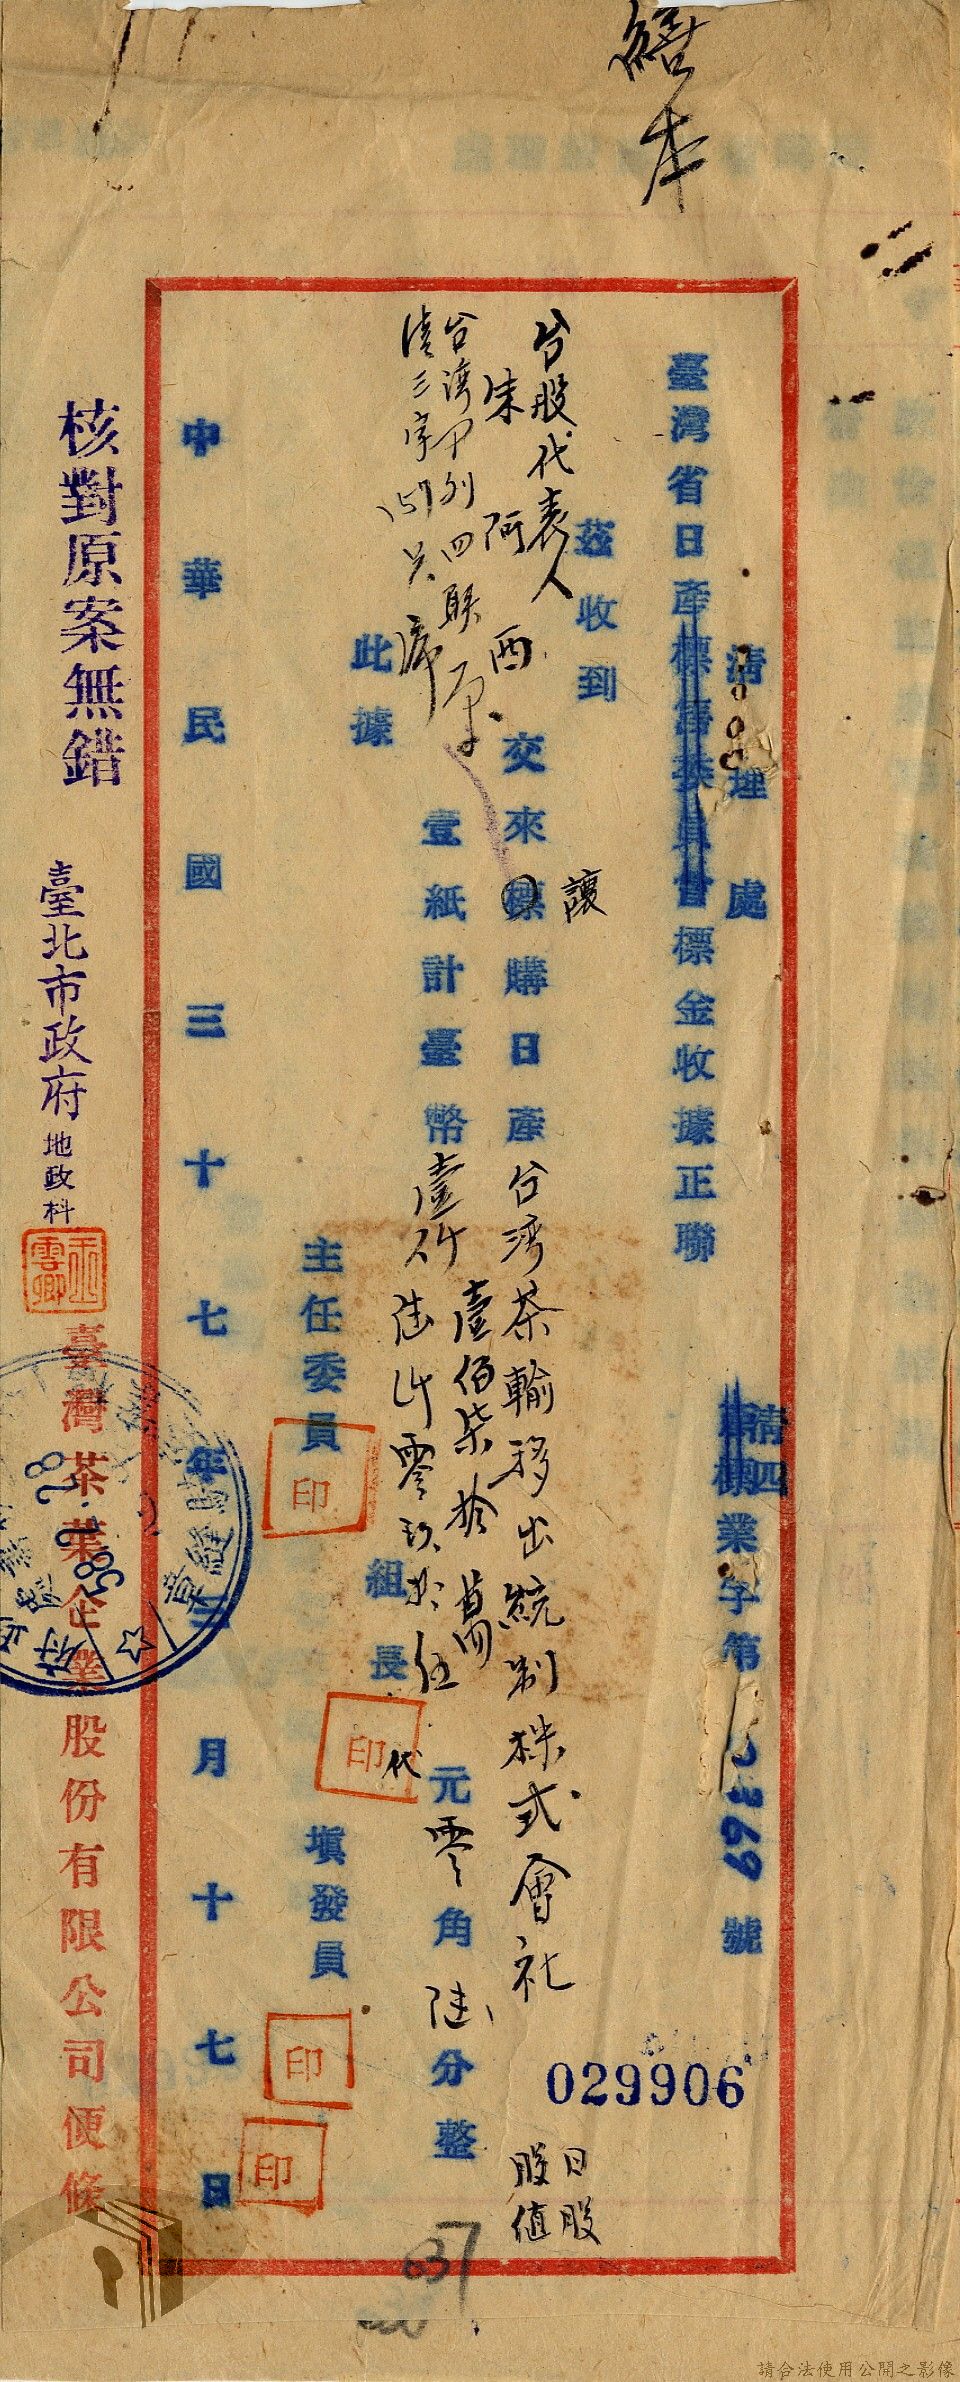 繕本
清理處
臺灣省日產標售委員會標金收據正聯
清四
業字第
69
號
茲收到
台股代表人
朱阿西
交來標購日產台灣茶輸移出統制株式會社
讓
日股
股值
029906
台灣甲列四聯
壹紙計臺幣壹仟壹佰柒拾萬
陸仟零玖拾伍元零角陸分整
此據
主任委員
印
組長
印
代
填發員
印
印
中華民國三十七年三月十七日
037
核對原案無錯
臺北市政府地政科
臺灣茶葉企業股份有限公司便條
58.2.28
請合法使用公開之影像